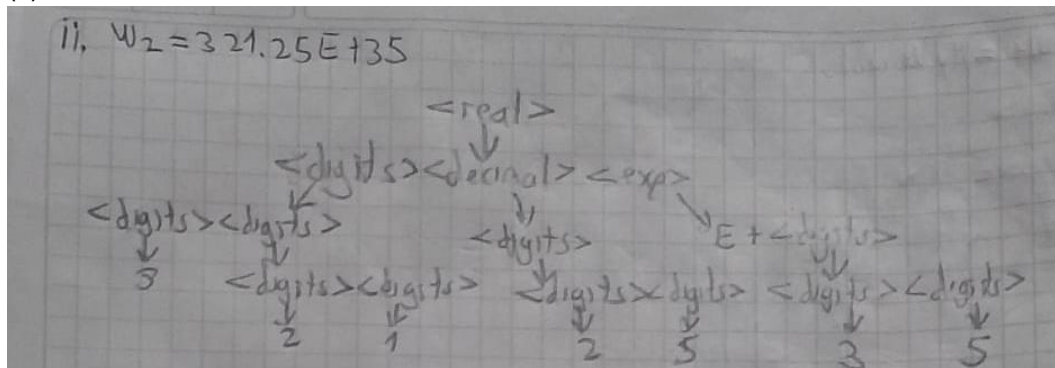 ii. W2 = 321.25E+35
<real>
<digits><decimal><exp>
<digits><digits> <digits> E+<digits>
3 <digits><digits> <digits><digits> <digits><digits>
2 1 2 5 3 5